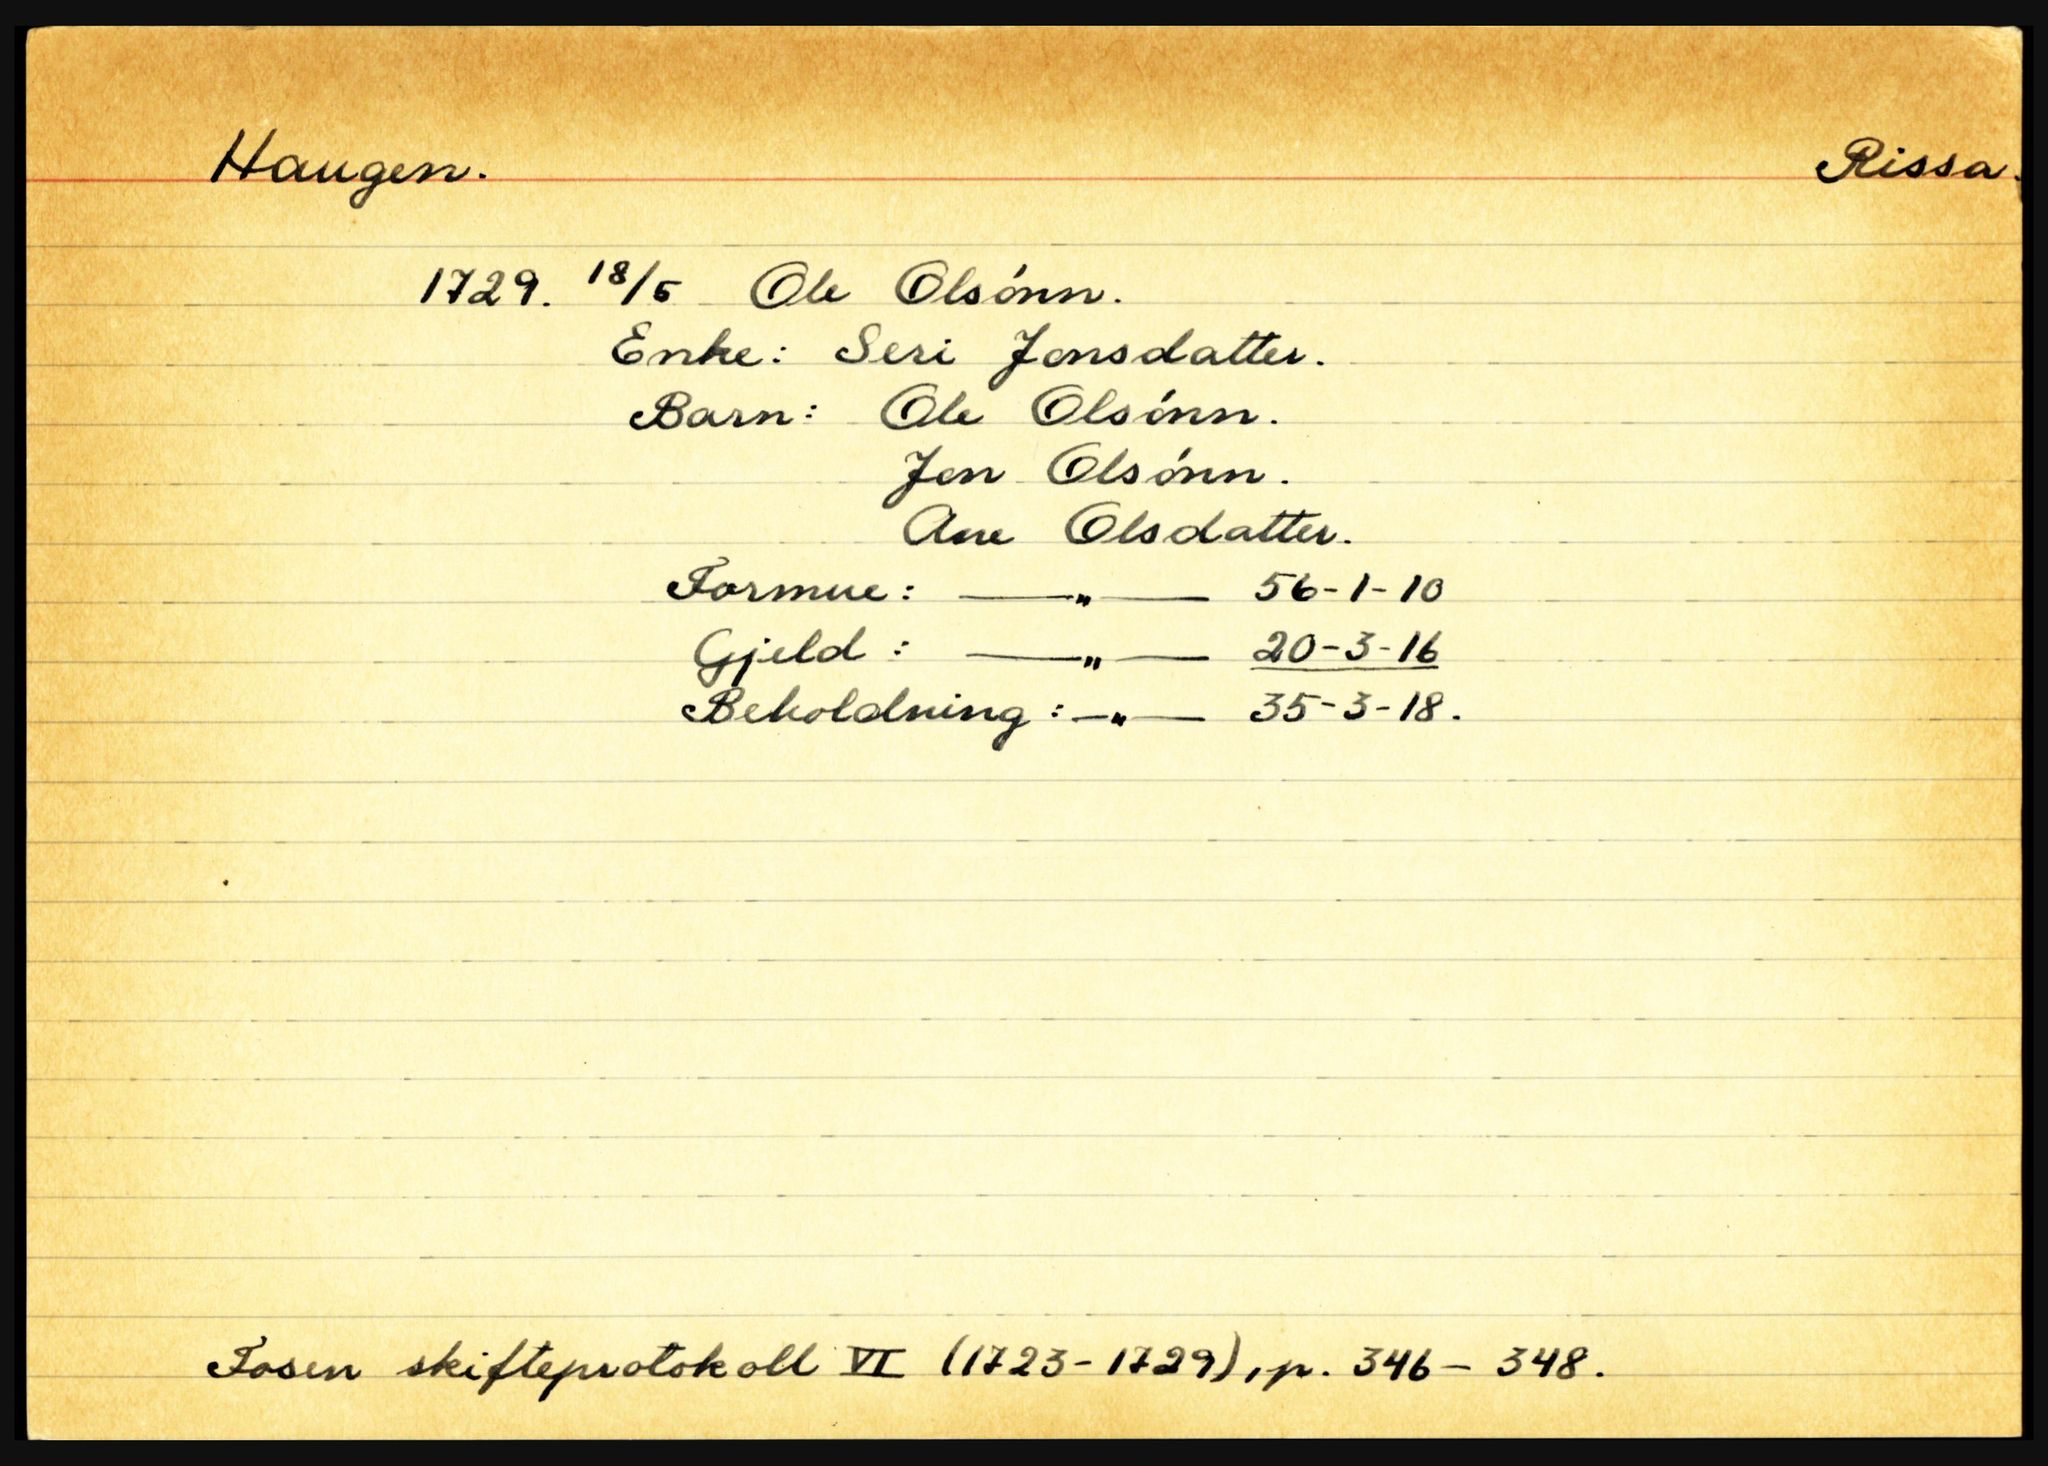 Haugen. Rissa.
1729. 18/5 Ole Olsónn.
Enke: Seri Jonsdatter.
Barn: Ole Olsónn.
Jon Olsónn.
Ane Olsdatter.
Formue: —„— 56-1-10
Gjeld: —„— 20-3-16
Beholdning: —„— 35-3-18.
Fosen skifteprotokoll VI (1723-1729), p. 346 - 348.